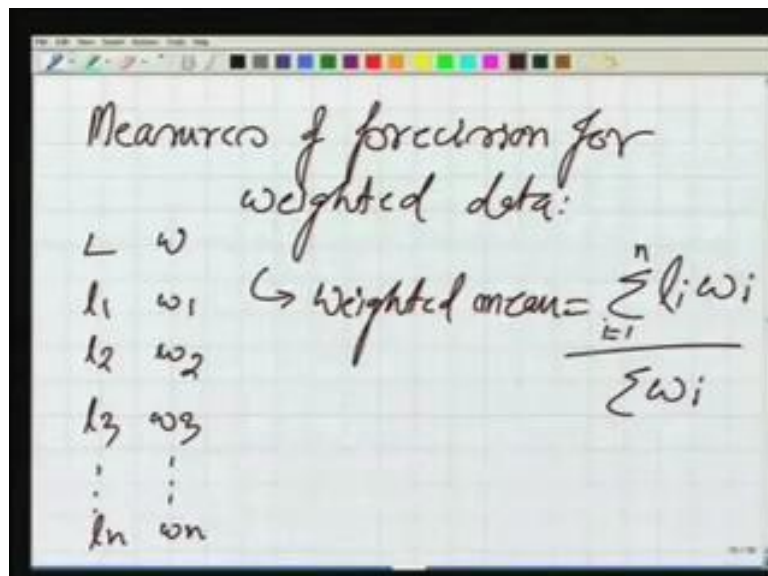 Measures of precision for
weighted data:
L w
l₁ w₁
l₂ w₂
l₃ w₃
⋮ ⋮
lₙ wₙ
↳ Weighted mean = \frac{\sum_{i=1}^{n} l_i w_i}{\sum w_i}